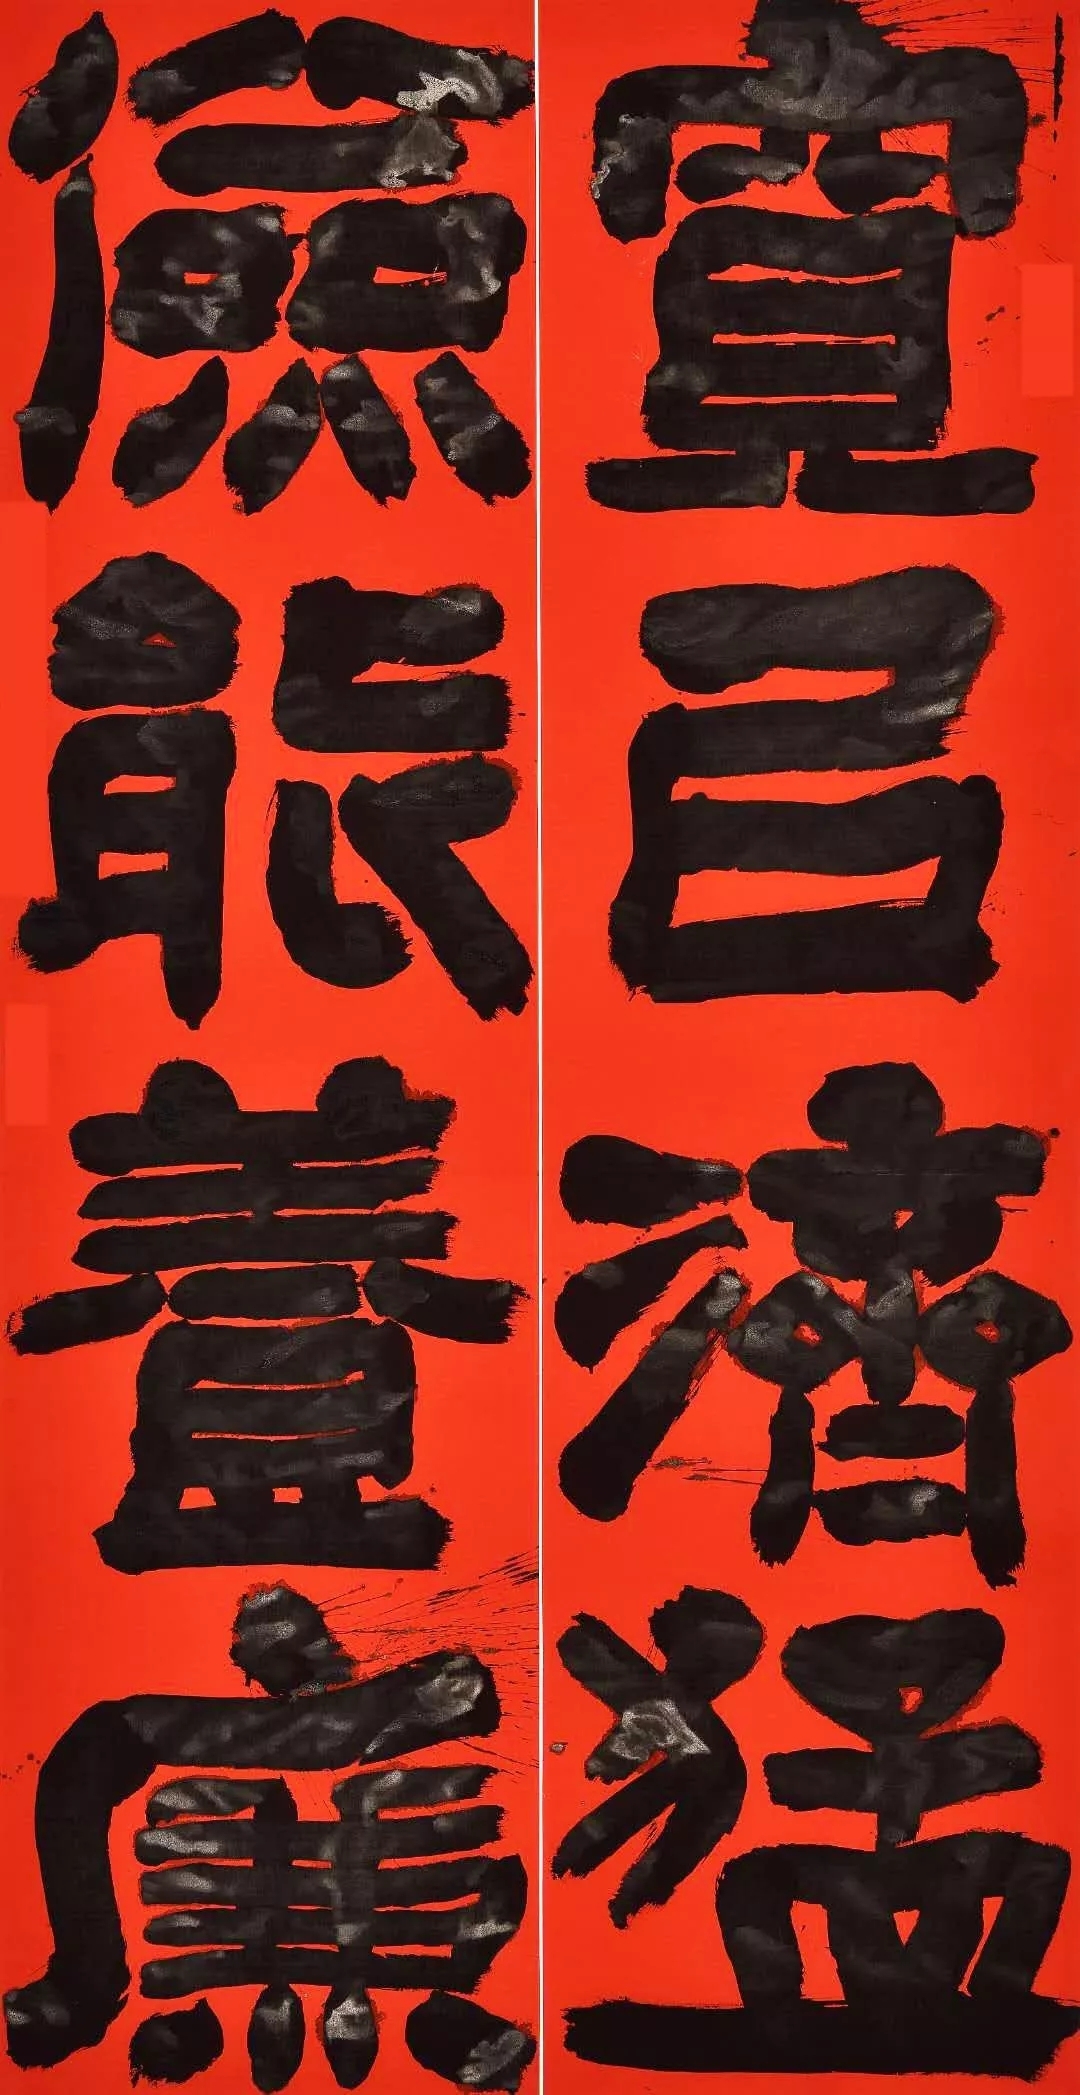 寬㠯濟猛
儉能養廉